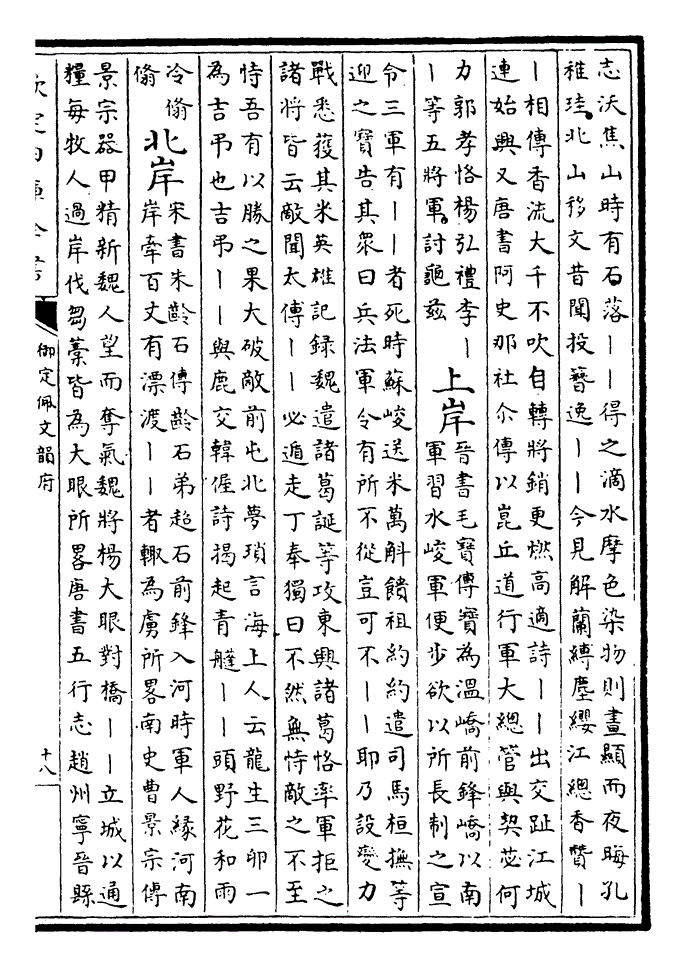 志沃焦山時有石落丨丨得之滴水摩色染物則晝顯而夜晦孔
稚珪北山移文昔聞投簪逸丨丨今見解蘭縛塵纓江總香贊丨
丨相傳香流大千不吹自轉將銷更燃高適詩丨丨出交趾江城
連始興又唐書阿史那社尒傳以崑丘道行軍大總管與契苾何
力郭孝恪楊弘禮李丨
丨等五將軍討龜茲
上岸
晉書毛寶傳寶為溫嶠前鋒嶠以南
軍習水峻軍便步欲以所長制之宣
令三軍有丨丨者死時蘇峻送米萬斛饋祖約約遣司馬桓撫等
迎之寶告其衆曰兵法軍令有所不從豈可不丨丨耶乃設變力
戰悉獲其米英雄記錄魏遣諸葛誕等攻東興諸葛恪率軍拒之
諸將皆云敵聞太傅丨丨必遁走丁奉獨曰不然無恃敵之不至
恃吾有以勝之果大破敵前屯北夢瑣言海上人云龍生三卵一
為吉弔也吉弔丨丨與鹿交韓偓詩揭起青艖丨丨頭野花和雨
冷脩
脩
北岸
宋書朱齡石傳齡石弟超石前鋒入河時軍人緣河南
岸牽百丈有漂渡丨丨者輙為虜所畧南史曹景宗傳
景宗器甲精新魏人望而奪氣魏將楊大眼對橋丨丨立城以通
糧每牧人過岸伐芻藁皆為大眼所畧唐書五行志趙州寧晉縣
欽定四庫全書
御定佩文韻府
十八